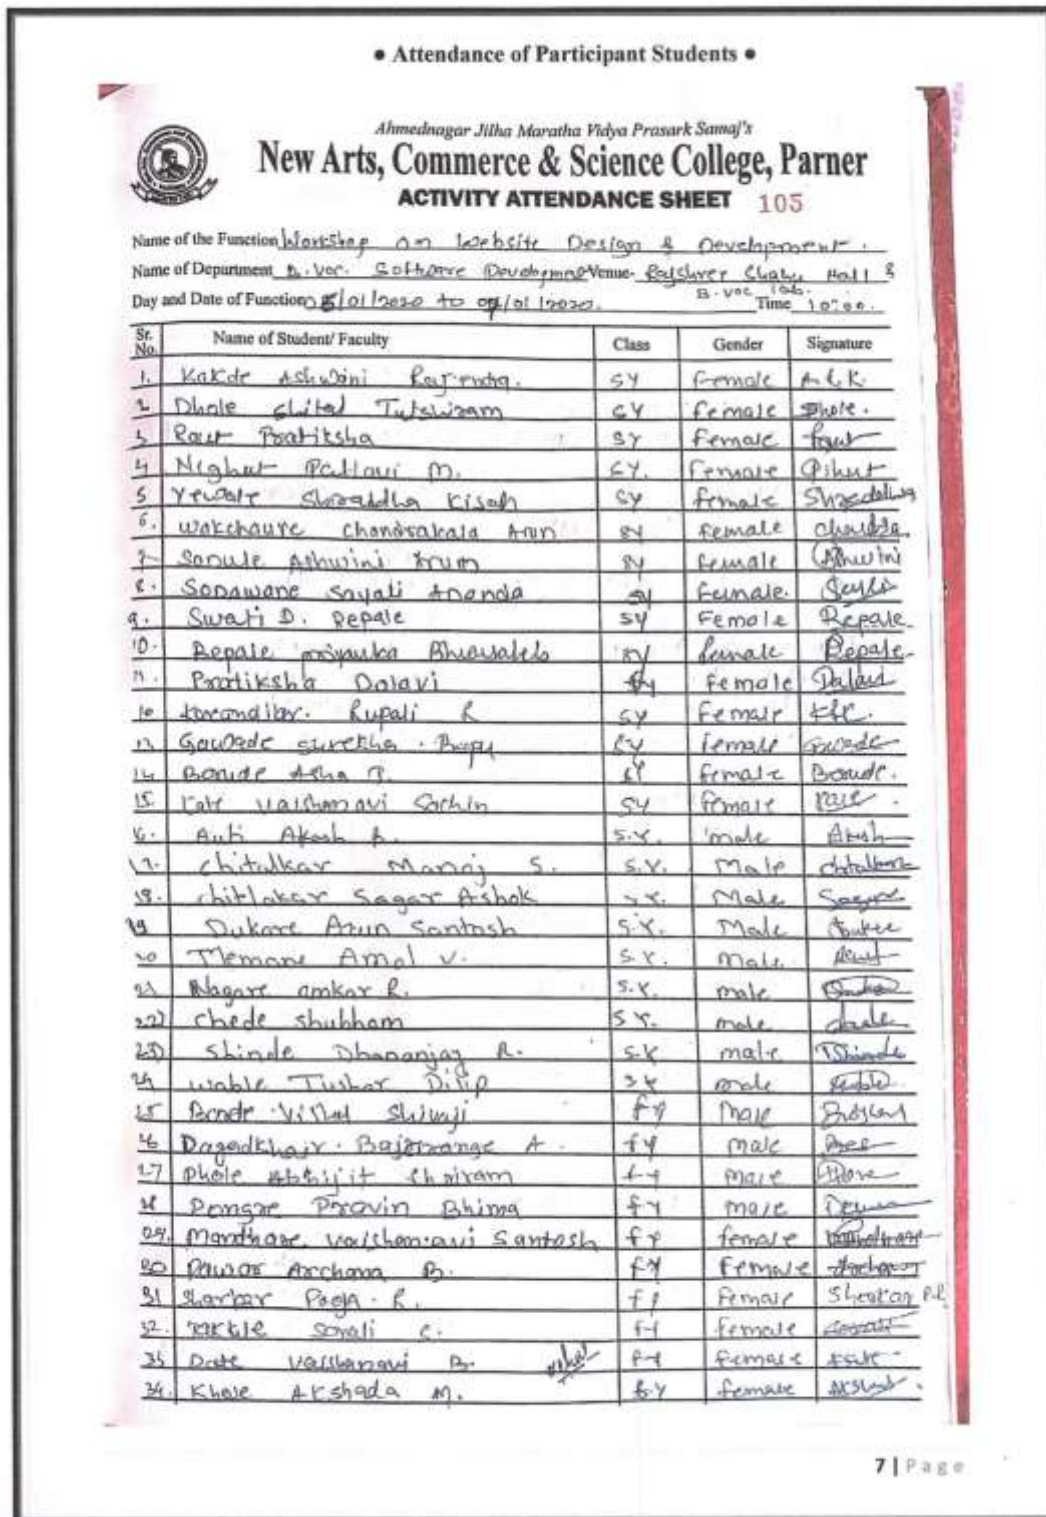 • Attendance of Participant Students •
Ahmednagar Jilha Maratha Vidya Prasark Samaj's
New Arts, Commerce & Science College, Parner
ACTIVITY ATTENDANCE SHEET 105
Name of the Function Workshop on Website Design & Development.
Name of Department B.Voc. Software Development Venue- Rajshree Shahu Hall &
B.voc lab.
Day and Date of Function /01/2020 to /01/2020. Time 10:00.
Sr. No. Name of Student/ Faculty Class Gender Signature
1. Kakde Ashwini Rajendra. SY Female A.R.K.
2 Dhole Shital Tulshiram SY female Dhole.
3 Raut Pratiksha SY Female Raut
4 Nighut Pallavi M. SY. Female
5 Yewale Shraddha Kisan SY female Shraddha
6. Wakchaure Chandrakala Arun SY female
7. Sonule Ashwini Arum SY female Ashwini
8. Sonawane Sayali Ananda SY Female.
9. Swati D. Repale SY Female Repale
10. Repale priyanka Bhausaheb SY female Repale
11. Pratiksha Dalavi SY Female Dalavi
12 Karandikar. Rupali R SY Female
13 Gawade surekha. Bapu SY female Gawade
14 Borude Asha T. SY female Borude.
15. Kale Vaishanavi Sachin SY female
16. Auti Akash B. S.Y. male Akash
17. Chitalkar Manoj S. S.Y. Male
18. chitlakar Sagar Ashok S.Y. Male Sagar
19 Dukare Arun Santosh S.Y. Male
20 Memane Amol V. S.Y. Male
21 Nagare omkar R. S.Y. male
22) Chede shubham S Y. male
23) Shinde Dhananjay R. S.Y male Dshinde
24 wable Tushar Dilip SY male
25 Bonde Vishal Shivaji fy Male
26 Dagadkhair. Bajarange A. fy male
27 Dhole Abhijit Shriram fy male
28 Dongre Pravin Bhima fy male
29. Mandhare. vaishanavi Santosh fy female
30 Pawar Archana B. fy Female
31 Sharkar Pooja. R. fy Female Sharkar P.R
32. Sonali C. fy female
33 Date vaishanavi B. fy Female
34. Khose Akshada M. f.y female
7 | Page